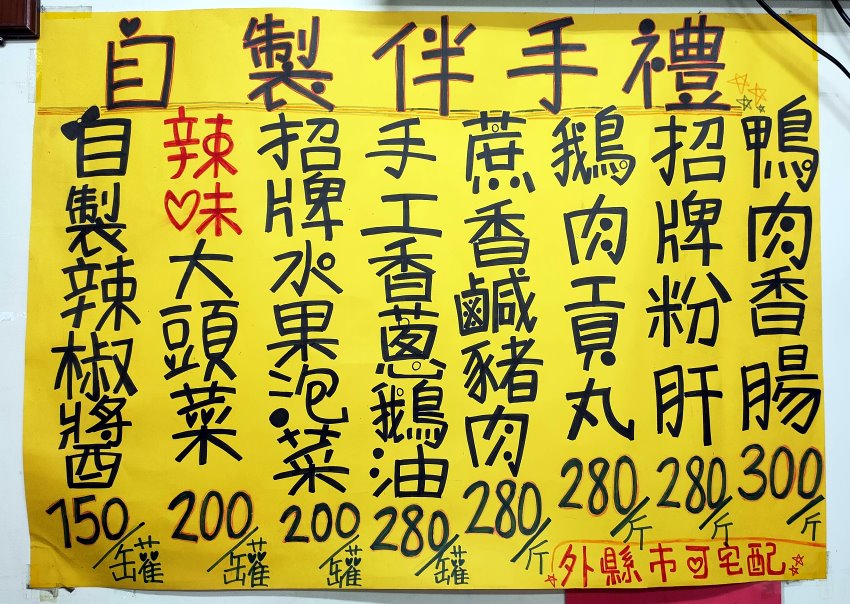 自製伴手禮
鴨肉香腸300/斤
招牌粉肝280/斤
鵝肉貢丸280/斤
蔗香鹹豬肉280/斤
手工香蔥鵝油280/罐
招牌水果泡菜200/罐
辣味大頭菜200/罐
自製辣椒醬150/罐
外縣市可宅配